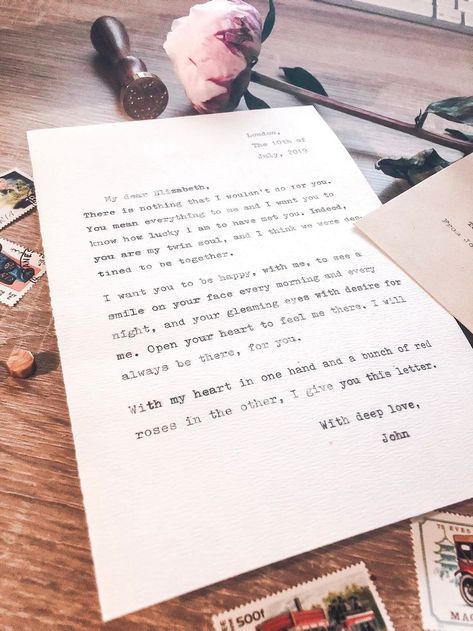 London,
The 10th of
July, 2019
My dear Elizabeth,
There is nothing that I wouldn't no for you.
You mean everything to me and I want you to
know how lucky I am to have met you. Indeed,
you are my twin soul, and I think we were des-
tined to be together.
I want you to be happy, with me, to see a
smile on your face every morning and every
night, and your gleaming eyes with desire for
me. Open your heart to feel me there. I will
always be there, for you.
With my heart in one hand and a bunch of red
roses in the other, I give you this letter.
With deep love,
John
1500